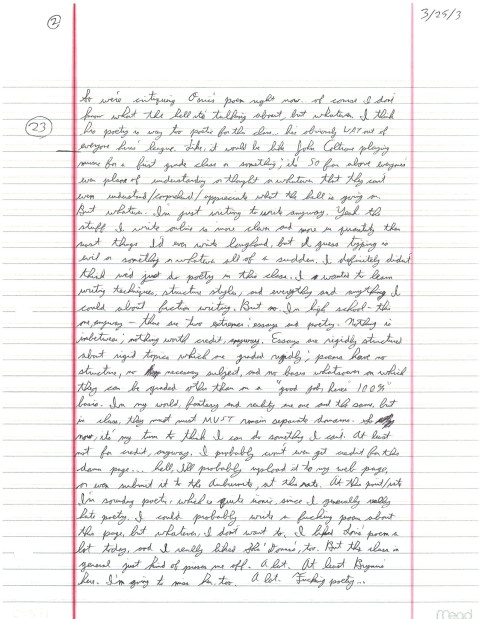 ②
3/25/3
So we're critiquing Osric's poem right now. of course I don't
know what the hell it's talking about, but whatever. I think
㉓
his poetry is way too poetic for this class... he's obviously WAY out of
everyone here's league. Like, it would be like John Coltrane playing
music for a first grade class or something; it's SO far above everyone's
even plane of understanding or thought or whatever that they can't
even understand/comprehend/appreciate what the hell is going on.
But whatever. I'm just writing to write anyway. Yeah the
stuff I write online is more clean and more in quantity than
most things I'd ever write longhand, but I guess typing is
evil or something or whatever all of a sudden. I definitely didn't
think we'd just do poetry in this class. I wanted to learn
writing techniques, structure, styles, and everything and anything I
could about fiction writing. But no. In high school - this
one, anyway - there are two extremes: essays and poetry. Nothing in
between; nothing worth credit, anyway. Essays are rigidly structured
about rigid topics which are graded rigidly; poems have no
structure, no necessary subject, and no basis whatsoever on which
they can be graded other than on a "good job, here's 100%"
basis. In my world, fantasy and reality are one and the same, but
in class, they must must MUST remain separate domains.
now, it's my turn to think I can do something I can't. At least
not for credit, anyway. I probably won't even get credit for this
damn page... hell, I'll probably upload it to my web page,
or even submit it to the at this rate. At this point/rate
I'm sounding poetic, which is quite ironic, since I generally really
hate poetry. I could probably write a fucking poem about
this page, but whatever, I don't want to. I liked poem a
lot today, and I really liked too. But this class in
general just kind of pisses me off. A lot. At least
here. I'm going to miss her, too. A lot. Fucking poetry...
Mead